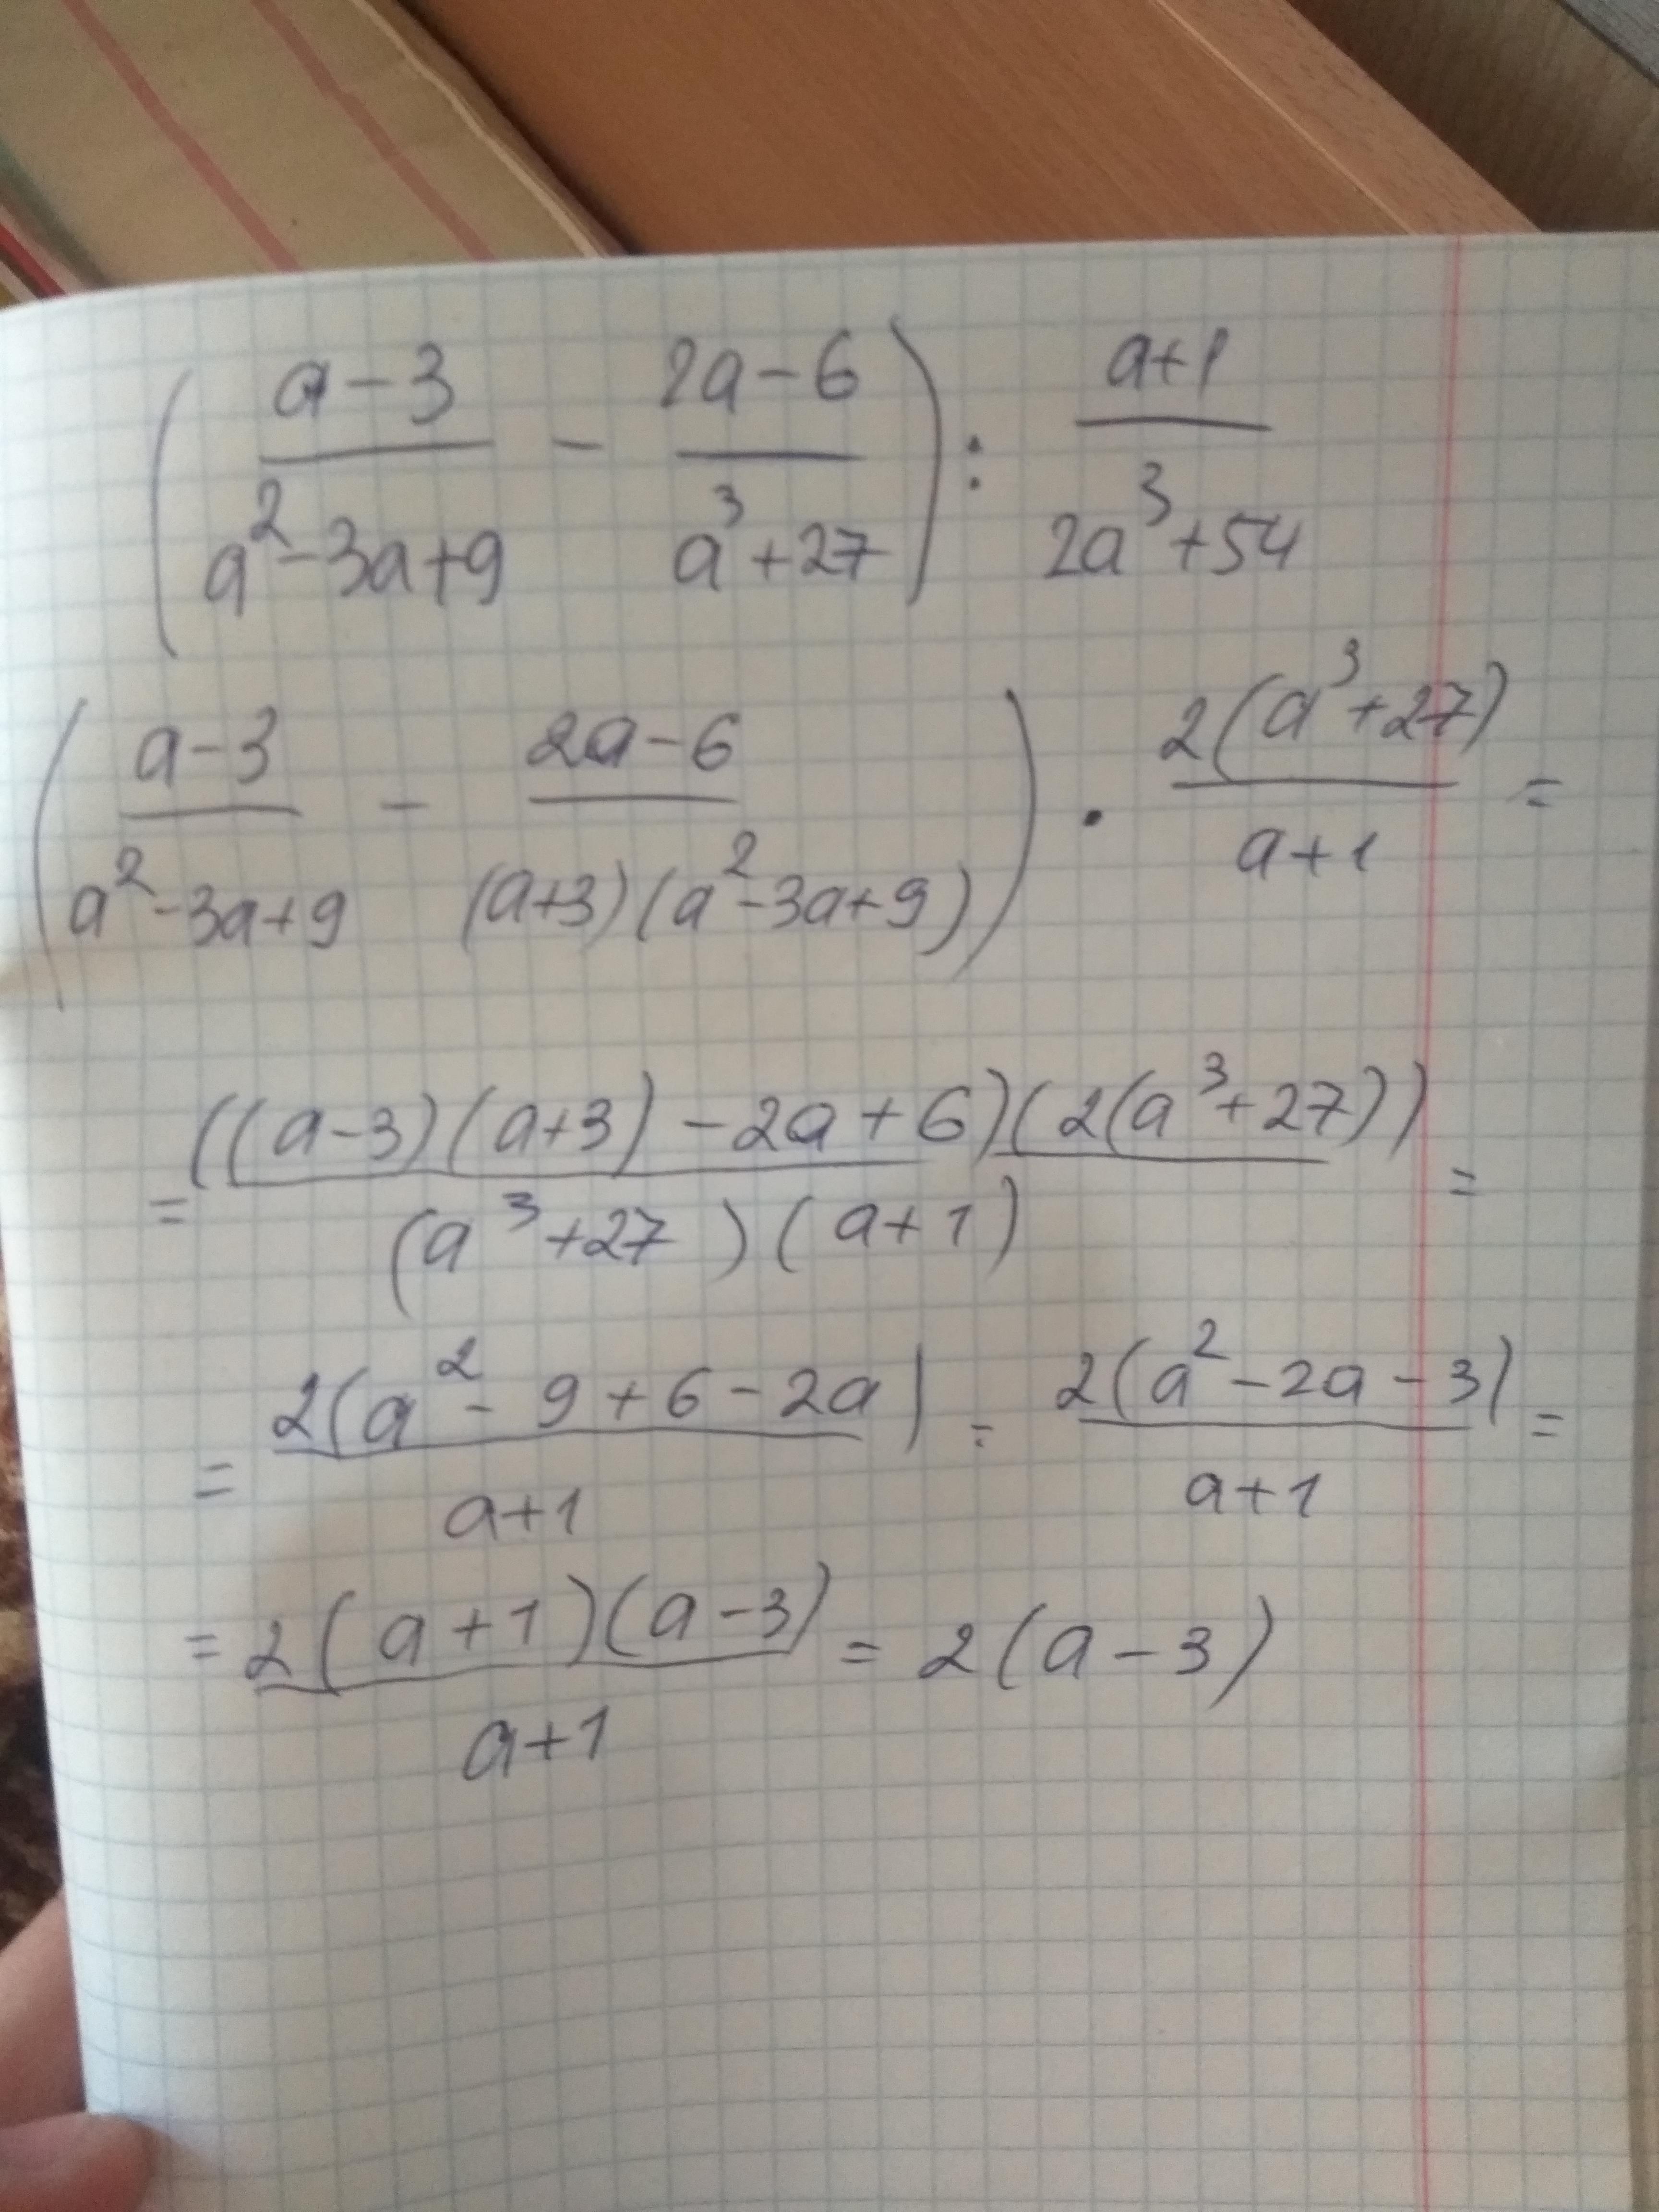 (a-3/a²-3a+9 - 2a-6/a³+27) : a+1/2a³+54
(a-3/a²-3a+9 - 2a-6/(a+3)(a²-3a+9)) · 2(a³+27)/a+1 =
= ((a-3)(a+3)-2a+6)(2(a³+27))/(a³+27)(a+1) =
= 2(a²-9+6-2a)/a+1 = 2(a²-2a-3)/a+1 =
= 2(a+1)(a-3)/a+1 = 2(a-3)